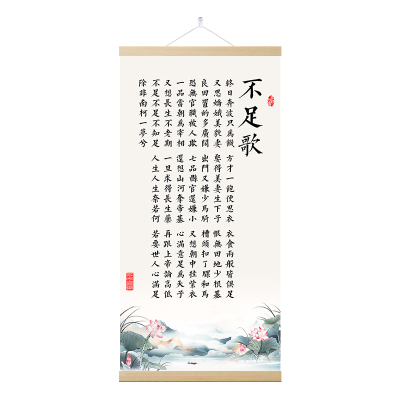 不足歌
終日奔波只為饑 方才一飽便思衣 衣食兩般皆俱足
又思嬌娥美貌妻 娶得美妻生下子 恨無田地少根基
良田置的多廣闊 出門又嫌少馬騎 槽頭扣了騾和馬
恐無官職被人欺 七品縣官還嫌小 又想朝中掛紫衣
一品當朝為宰相 還想山河奪帝基 心滿意足為天子
又想長生不老期 一旦求得長生藥 再跟上帝論高低
不足不足不知足 人生人生奈若何 若要世人心滿足
除非南柯一夢兮